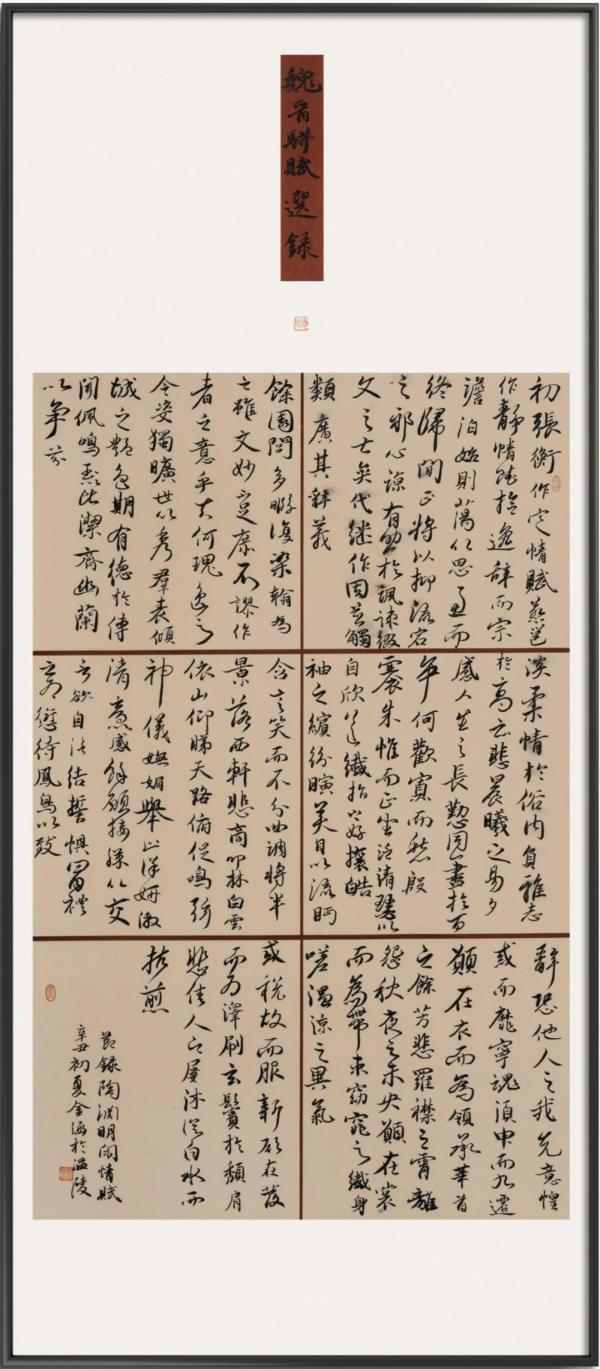 魏晉駢賦選錄
初張衡作定情賦蔡邕
作靜情賦撿逸辭而宗
澹泊始則蕩以思慮而
終歸閒正將以抑流宕
之邪心諒有助於諷諫綴
文之士奕代繼作因並觸
類廣其辭義
餘園閭多暇復染翰為
之雖文妙不足庶不謬作
者之意乎夫何瑰逸之
令姿獨曠世以秀羣表傾
城之艷色期有德於傳
聞佩鳴玉比潔齊幽蘭
以爭芬
淡柔情於俗內負雅志
於高雲悲晨曦之易夕
感人生之長勤同一盡於百
年何歡寡而愁殷
褰朱帷而正坐泛清瑟以
自欣送纖指之餘好攘皓
袖之繽紛瞬美目以流眄
含言笑而不分曲調將半
景落西軒悲商叩林白雲
依山仰睇天路俯促鳴絃
神儀嫵媚舉止詳妍激
清音感餘願接膝以交
言欲自往結誓懼冒禮
為愆待鳳鳥以致
辭恐他人之我先意惶
惑而靡寧魂須臾而九遷
願在衣而為領承華首
之餘芳悲羅襟之宵離
怨秋夜之未央願在裳
而為帶束窈窕之纖身
嗟溫涼之異氣
或脫故而服新願在髮
而為澤刷玄鬢於頹肩
悲佳人之屢沐從白水而
枯煎
節錄陶淵明閒情賦
辛丑初夏金海於溫陵